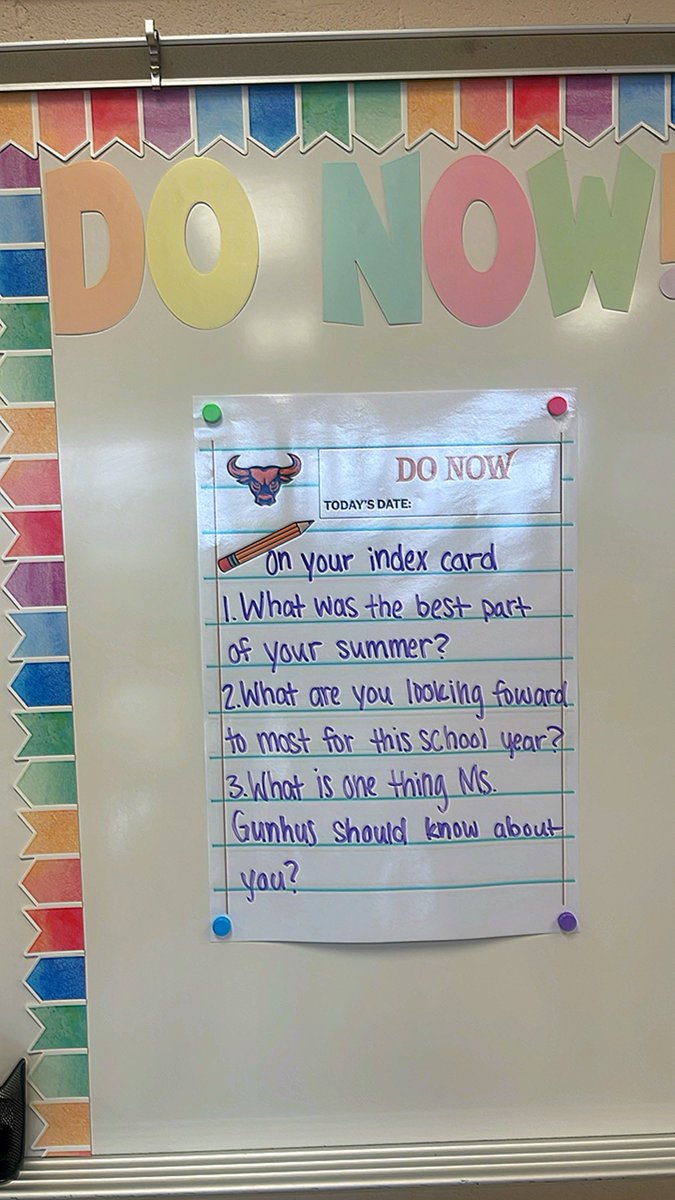 DO NOW!
DO NOW
TODAY'S DATE:
on your index card
1. What was the best part
of your summer?
2. What are you looking foward
to most for this school year?
3. What is one thing Ms.
Gunhus should know about
you?